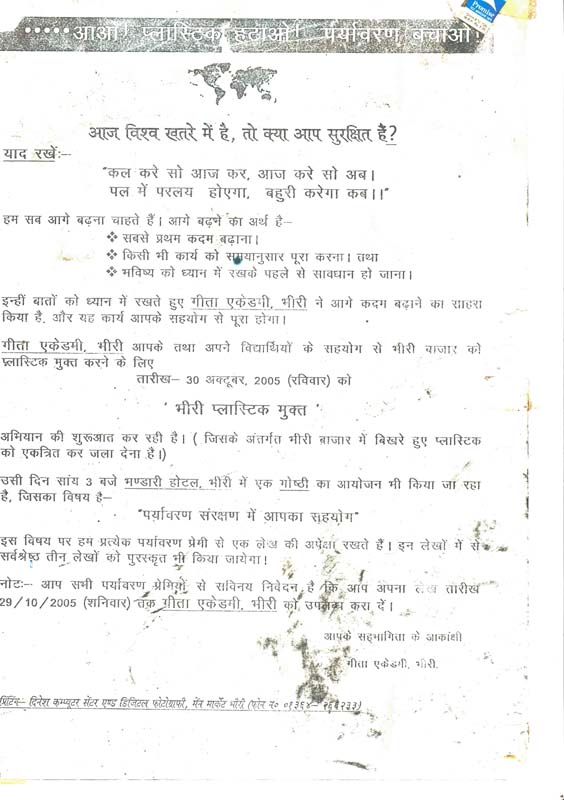 आओ! प्लास्टिक हटाओ! पर्यावरण बचाओ!
आज विश्व खतरे में है, तो क्या आप सुरक्षित हैं?
याद रखें:–
"कल करे सो आज कर, आज करे सो अब।
पल में परलय होएगा, बहुरी करेगा कब।।"
हम सब आगे बढ़ना चाहते हैं। आगे बढ़ने का अर्थ है–
❖ सबसे प्रथम कदम बढ़ाना।
❖ किसी भी कार्य को समयानुसार पूरा करना। तथा
❖ भविष्य को ध्यान में रखके पहले से सावधान हो जाना।
इन्हीं बातों को ध्यान में रखते हुए गीता एकेडमी, भीरी ने आगे कदम बढ़ाने का साहस
किया है, और यह कार्य आपके सहयोग से पूरा होगा।
गीता एकेडमी, भीरी आपके तथा अपने विद्यार्थियों के सहयोग से भीरी बाजार को
प्लास्टिक मुक्त करने के लिए
तारीख– 30 अक्टूबर, 2005 (रविवार) को
' भीरी प्लास्टिक मुक्त '
अभियान की शुरूआत कर रही है। ( जिसके अंतर्गत भीरी बाजार में बिखरे हुए प्लास्टिक
को एकत्रित कर जला देना है।)
उसी दिन सांय 3 बजे भण्डारी होटल, भीरी में एक गोष्ठी का आयोजन भी किया जा रहा
है, जिसका विषय है–
"पर्यावरण संरक्षण में आपका सहयोग"
इस विषय पर हम प्रत्येक पर्यावरण प्रेमी से एक लेख की अपेक्षा रखते हैं। इन लेखों में से
सर्वश्रेष्ठ तीन लेखों को पुरस्कृत भी किया जायेगा।
नोटः– आप सभी पर्यावरण प्रेमियों से सविनय निवेदन है कि आप अपना लेख तारीख
29/10/2005 (शनिवार) तक गीता एकेडमी, भीरी को उपलब्ध करा दें।
आपके सहभागिता के आकांक्षी
गीता एकेडमी, भीरी.
प्रिंटिंग– दिनेश कम्प्यूटर सेंटर एण्ड डिजिटल फोटोग्राफी, मेन मार्केट भीरी (फोन न० ०१३६४–